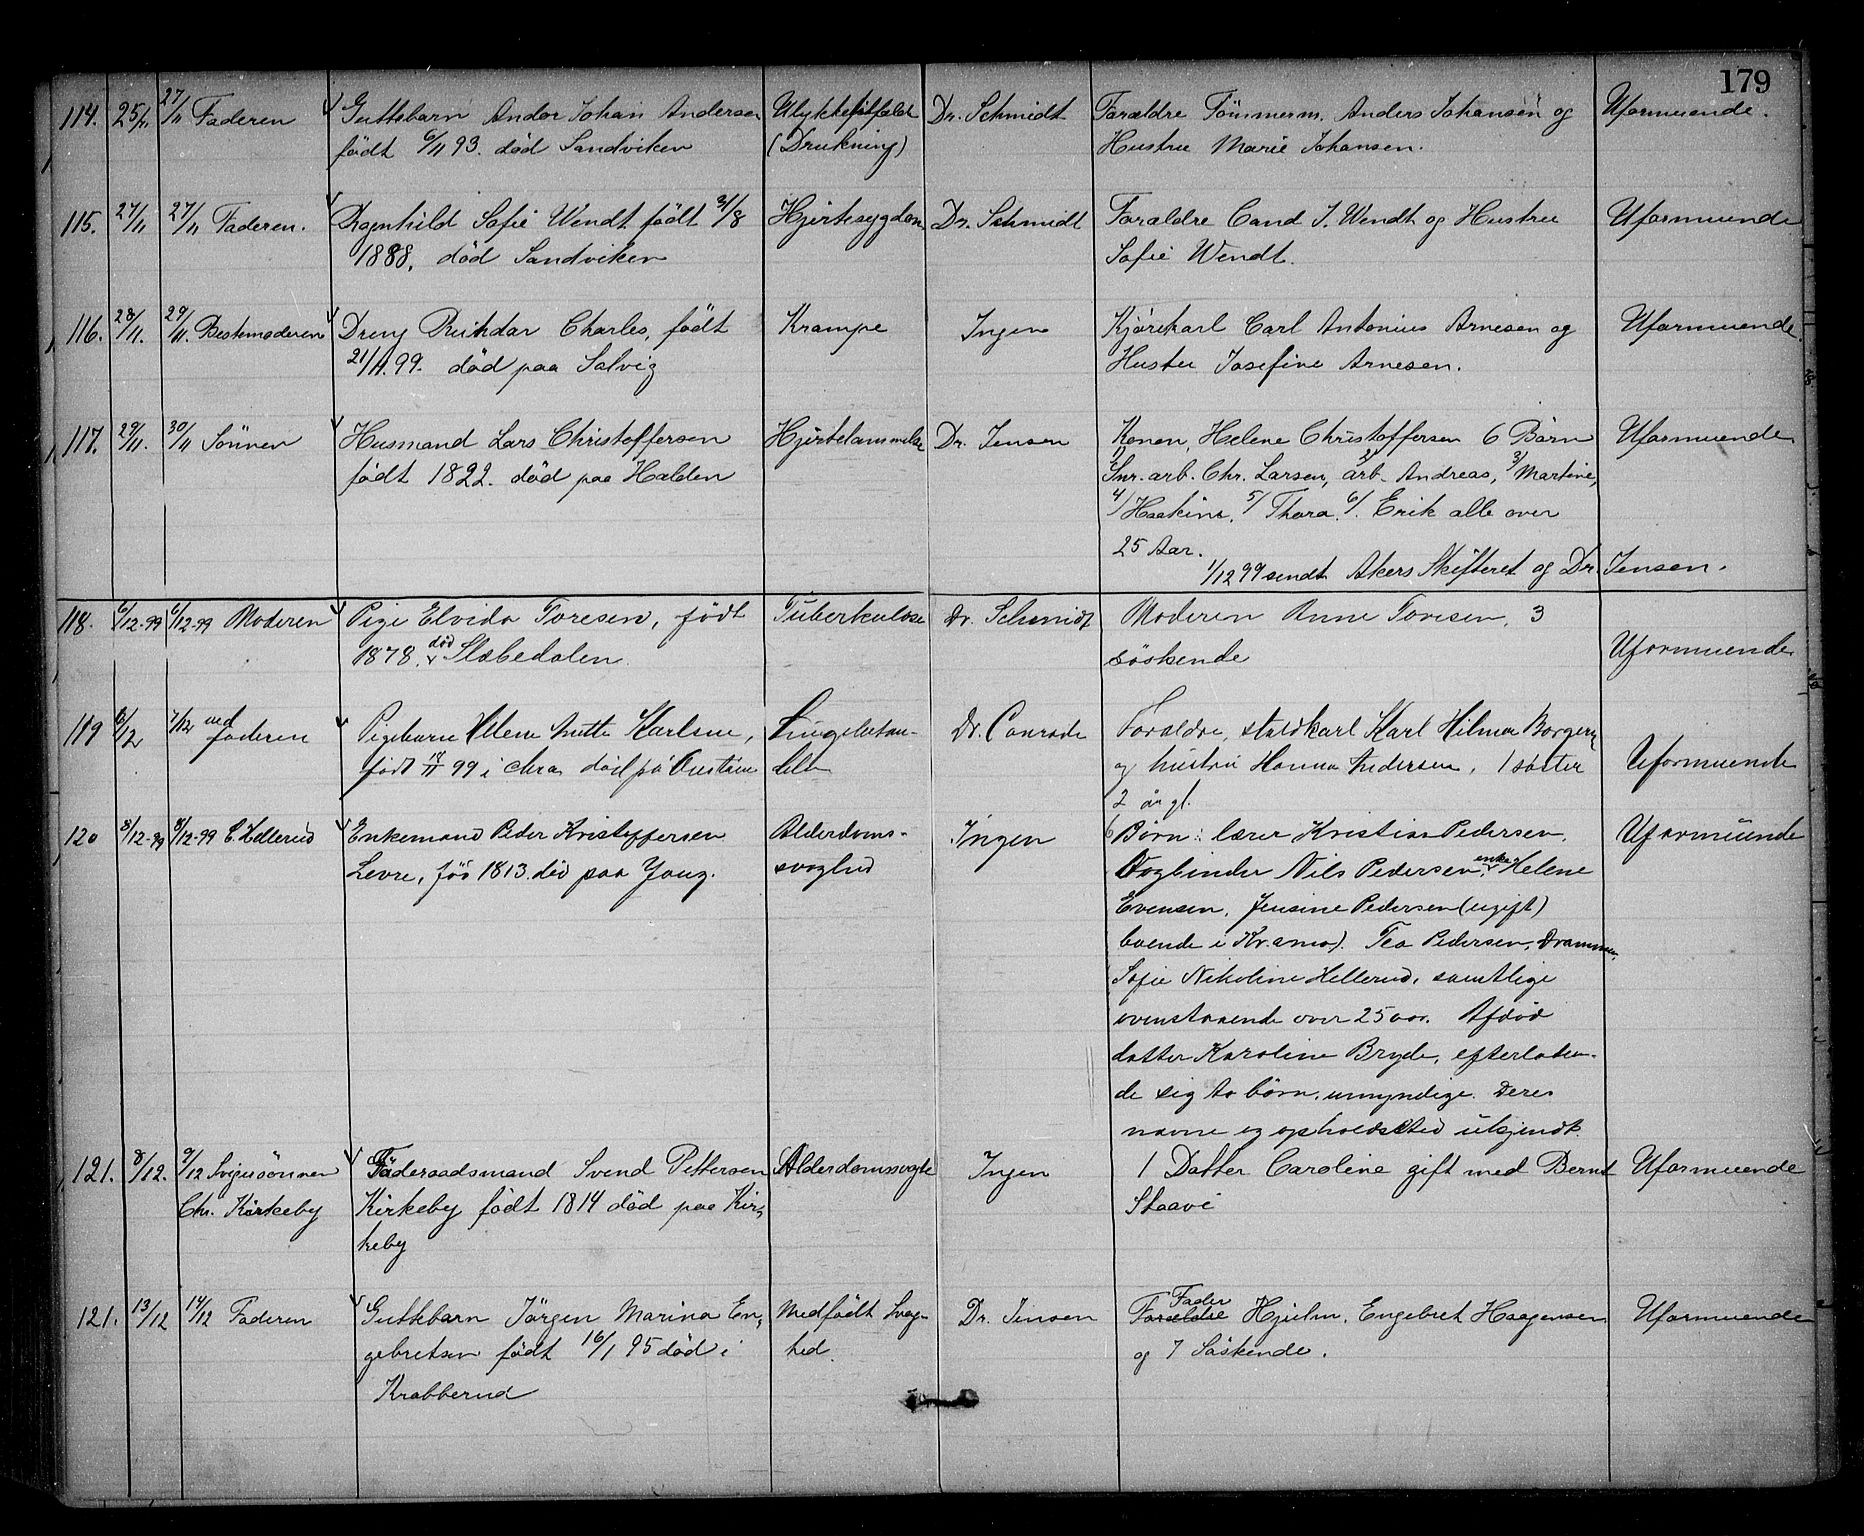 179
114. 25/11 27/11 Faderen Guttebarn Andor Johan Andersen Ulykkestilfælde Dr. Schmidt Forældre Tömmerm. Anders Johansen og Uformuende.
født 6/11 93. död Sandviken (Drukning) Hustru Marie Johansen.
115. 27/11 27/11 Faderen. Ragnhild Sofie Wendt født 21/8 Hjertesygdom Dr. Schmidt Forældre Cand J. Wendt og Hustru Uformuende
1888, död Sandviken Sofie Wendt.
116. 28/11. 29/11. Bestemoderen Dreng Charles, födt Krampe Ingen Kjörekarl Carl Antonius Arnesen og Uformuende.
21/11.99. död paa Solvig Hustru Josefine Arnesen.
117. 29/11. 30/11 Sönnen Husmand Lars Christoffersen Hjertelammelse Dr. Jensen Konen, Helene Christoffersen 6 Börn Uformuende
födt 1822. död paa Halden 1/ Snr. arb. Chr. Larsen, 2/ arb. Andreas, 3/ Martine,
4/ Haakine, 5/ Thora, 6/. Erik alle over
25 Aar.
1/12 99 sendt Akers Skifteret og Dr. Jensen.
118. 6/12-99 6/12-99 Moderen Pige Elvida Toresen, født Tuberkulose Dr. Schmidt Moderen Anne Toresen, 3
1878. död Slæbedalen. söskende Uformuende
119 6/12 7/12 ved faderen Pigebarn Helene Karlsen, Lungebetæn- Dr. Conradi Forældre, staldkarl Karl Hilmer Borgen
født 18/11 99 i Chra död på delse og hustru Hanna Andersen, 1 søster Uformuende
2 år gl.
120 8/12-99 8/12-99 E. Hellerud Enkemand Peder Kristoffersen Alderdoms- Ingen 6 Børn: lærer Kristian Pedersen, Uformuende
Levre, fød 1813. död paa Jong. svaghed Bogbinder Nils Pedersen, enke Helene
Evensen, Jensine Pedersen (ugift)
boende i Kr.ania). Tea Pedersen, Drammen,
Sofie Nikoline Hellerud, samtlige
ovenstaaende over 25 aar. Afdöd
datter Karoline Bryde, efterladen-
de sig to børn, umyndige. Deres
navne og opholdssted ubekjendt.
121. 8/12. 9/12 Svigersönnen Föderaadsmand Svend Pettersen Alderdomssvaghe Ingen 1 Datter Caroline gift med Bernt Uformuende
Chr. Kirkeby Kirkeby födt 1814 död paa Kir- Staavi
keby
121. 13/12 14/12 Faderen Guttebarn Jörgen Marina En- Medfödt Svag- Dr. Jensen Forældre Fader Hjulm. Engebret Haagensen Uformuende
gebretsen födt 16/1 95 död i hed. og 7 Söskende.
Krabberud